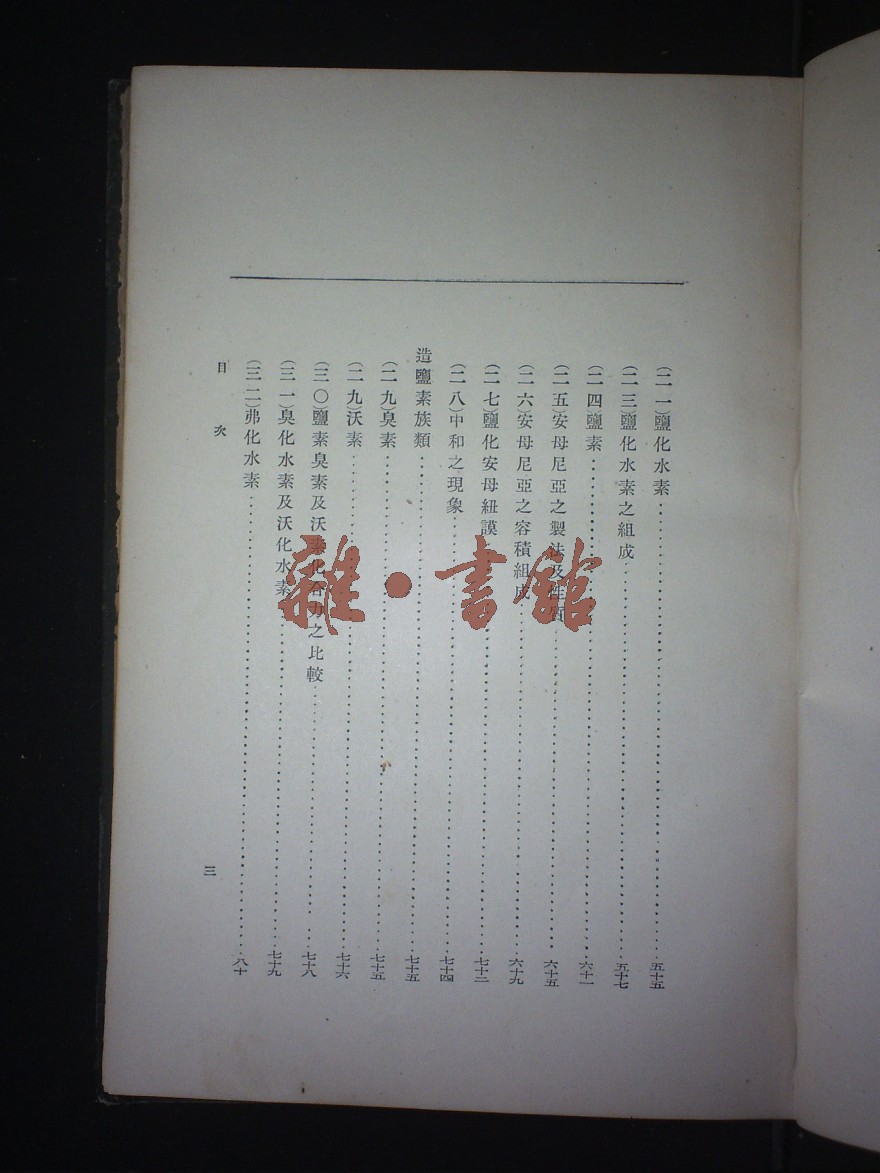 (二一)鹽化水素 五十五
(二三)鹽化水素之組成 五十七
(二四)鹽素 六十一
(二五)安母尼亞之製法及性質 六十五
(二六)安母尼亞之容積組成 六十九
(二七)鹽化安母紐謨 七十二
(二八)中和之現象 七十四
造鹽素族類 七十五
(二九)臭素 七十五
(二九)沃素 七十六
(三〇)鹽素臭素及沃素化合力之比較 七十八
(三一)臭化水素及沃化水素 七十九
(三二)弗化水素 八十
目次
三
雜·書館